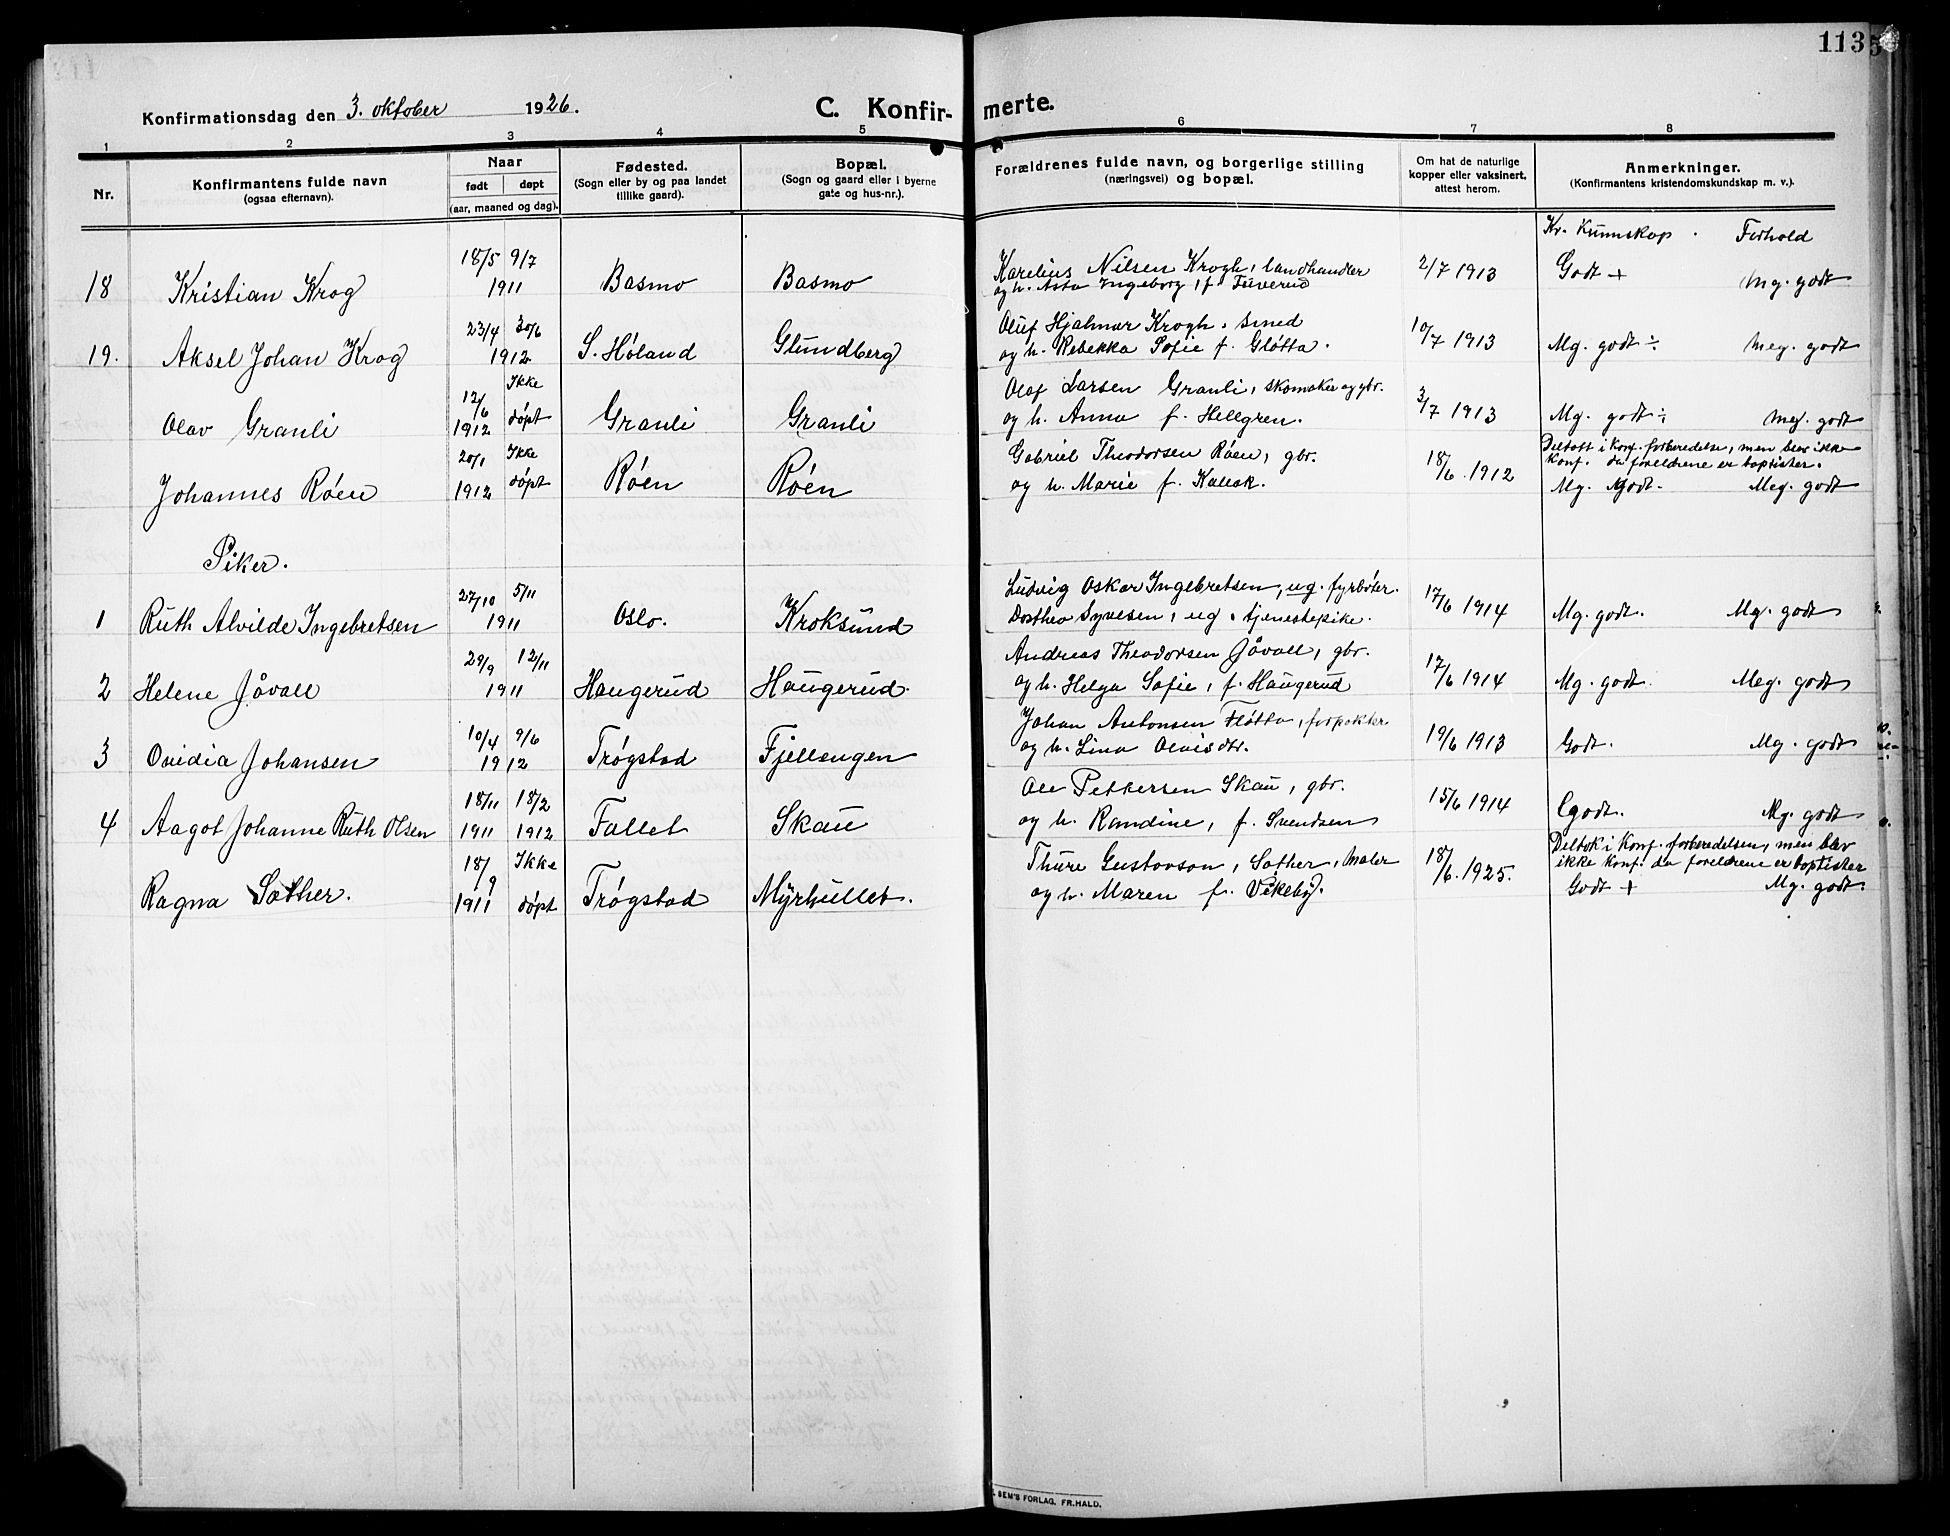 113
Konfirmationsdag den 3. oktober 1926.
C. Konfirmerte.
1 2 3 4 5 6 7 8
Nr.
Konfirmantens fulde navn
(ogsaa efternavn).
Naar
født døpt
(aar, maaned og dag).
Fødested.
(Sogn eller by og paa landet
tillike gaard).
Bopæl.
(Sogn og gaard eller i byerne
gate og hus-nr.).
Forældrenes fulde navn, og borgerlige stilling
(næringsvei) og bopæl.
Om hat de naturlige
kopper eller vaksinert,
attest herom.
Anmerkninger.
(Konfirmantens kristendomskundskap m. v.).
Kr. Kunnskap. Forhold
18 Kristian Krog 18/5 9/7 1911 Basmo Basmo
Karelius Nilsen Krogh, landhandler
og h. Asta Ingeborg, f. Tuverud
2/7 1913 Godt + Mg. godt
19. Aksel Johan Krog 23/4 30/6 1912 S. Høland Glundberg
Oluf Hjalmar Krogh, smed
og h. Rebekka Sofie f. Gløtta.
10/7 1913 Mg. godt ÷ Meg. godt
Olav Granli 12/6 1912 Ikke døpt Granli Granli
Olaf Larsen Granli, skomaker og gbr.
og h. Anna f. Hellgren.
3/7 1913 Mg. godt ÷ Meg. godt
Johannes Røen 20/1 1912 Ikke døpt Røen Røen
Gabriel Theodorsen Røen, gbr.
og h. Marie f. Kallak.
18/6. 1912
Deltatt i Konf. forberedelse, men blev ikke
Konf. da foreldrene er baptister.
Mg. godt. Meg. godt
Piker.
1 Ruth Alvilde Ingebretsen 27/10 5/11 1911 Oslo. Kroksund
Ludvig Oskar Ingebretsen, ug. fyrbøter.
Dorthea Syversen, ug. tjenestepike.
17/6 1914 Mg. godt. Mg. godt
2 Helene Jåvall 29/9 12/11 1911 Haugerud Haugerud.
Andreas Theodorsen Jåvall, gbr.
og h. Helga Sofie, f. Haugerud
17/6 1914 Mg. godt. Meg. godt
3 Ovidia Johansen 10/4 9/6 1912 Trøgstad Fjellengen
Johan Antonsen Fløtta, forpakter
og h. Lina Olvisdtr.
19/6 1913 Godt. Mg. godt
4 Aagot Johanne Ruth Olsen 18/11 1911 18/2 1912 Fallet Skau
Ole Pettersen Skau, gbr.
og h. Randine, f. Svendsen
15/6 1914 godt. Mg. godt
Ragna Sæther. 18/9 1911 Ikke døpt Trøgstad Myrhullet.
Thure Gustavson, Sæther, maler
og h. Maren f. Vikeby.
18/6. 1925.
Deltok i Konf. forberedelsen, men blev
ikke konf. da foreldrene er baptister
Godt + Mg. godt
SEM'S FORLAG, FR.HALD.